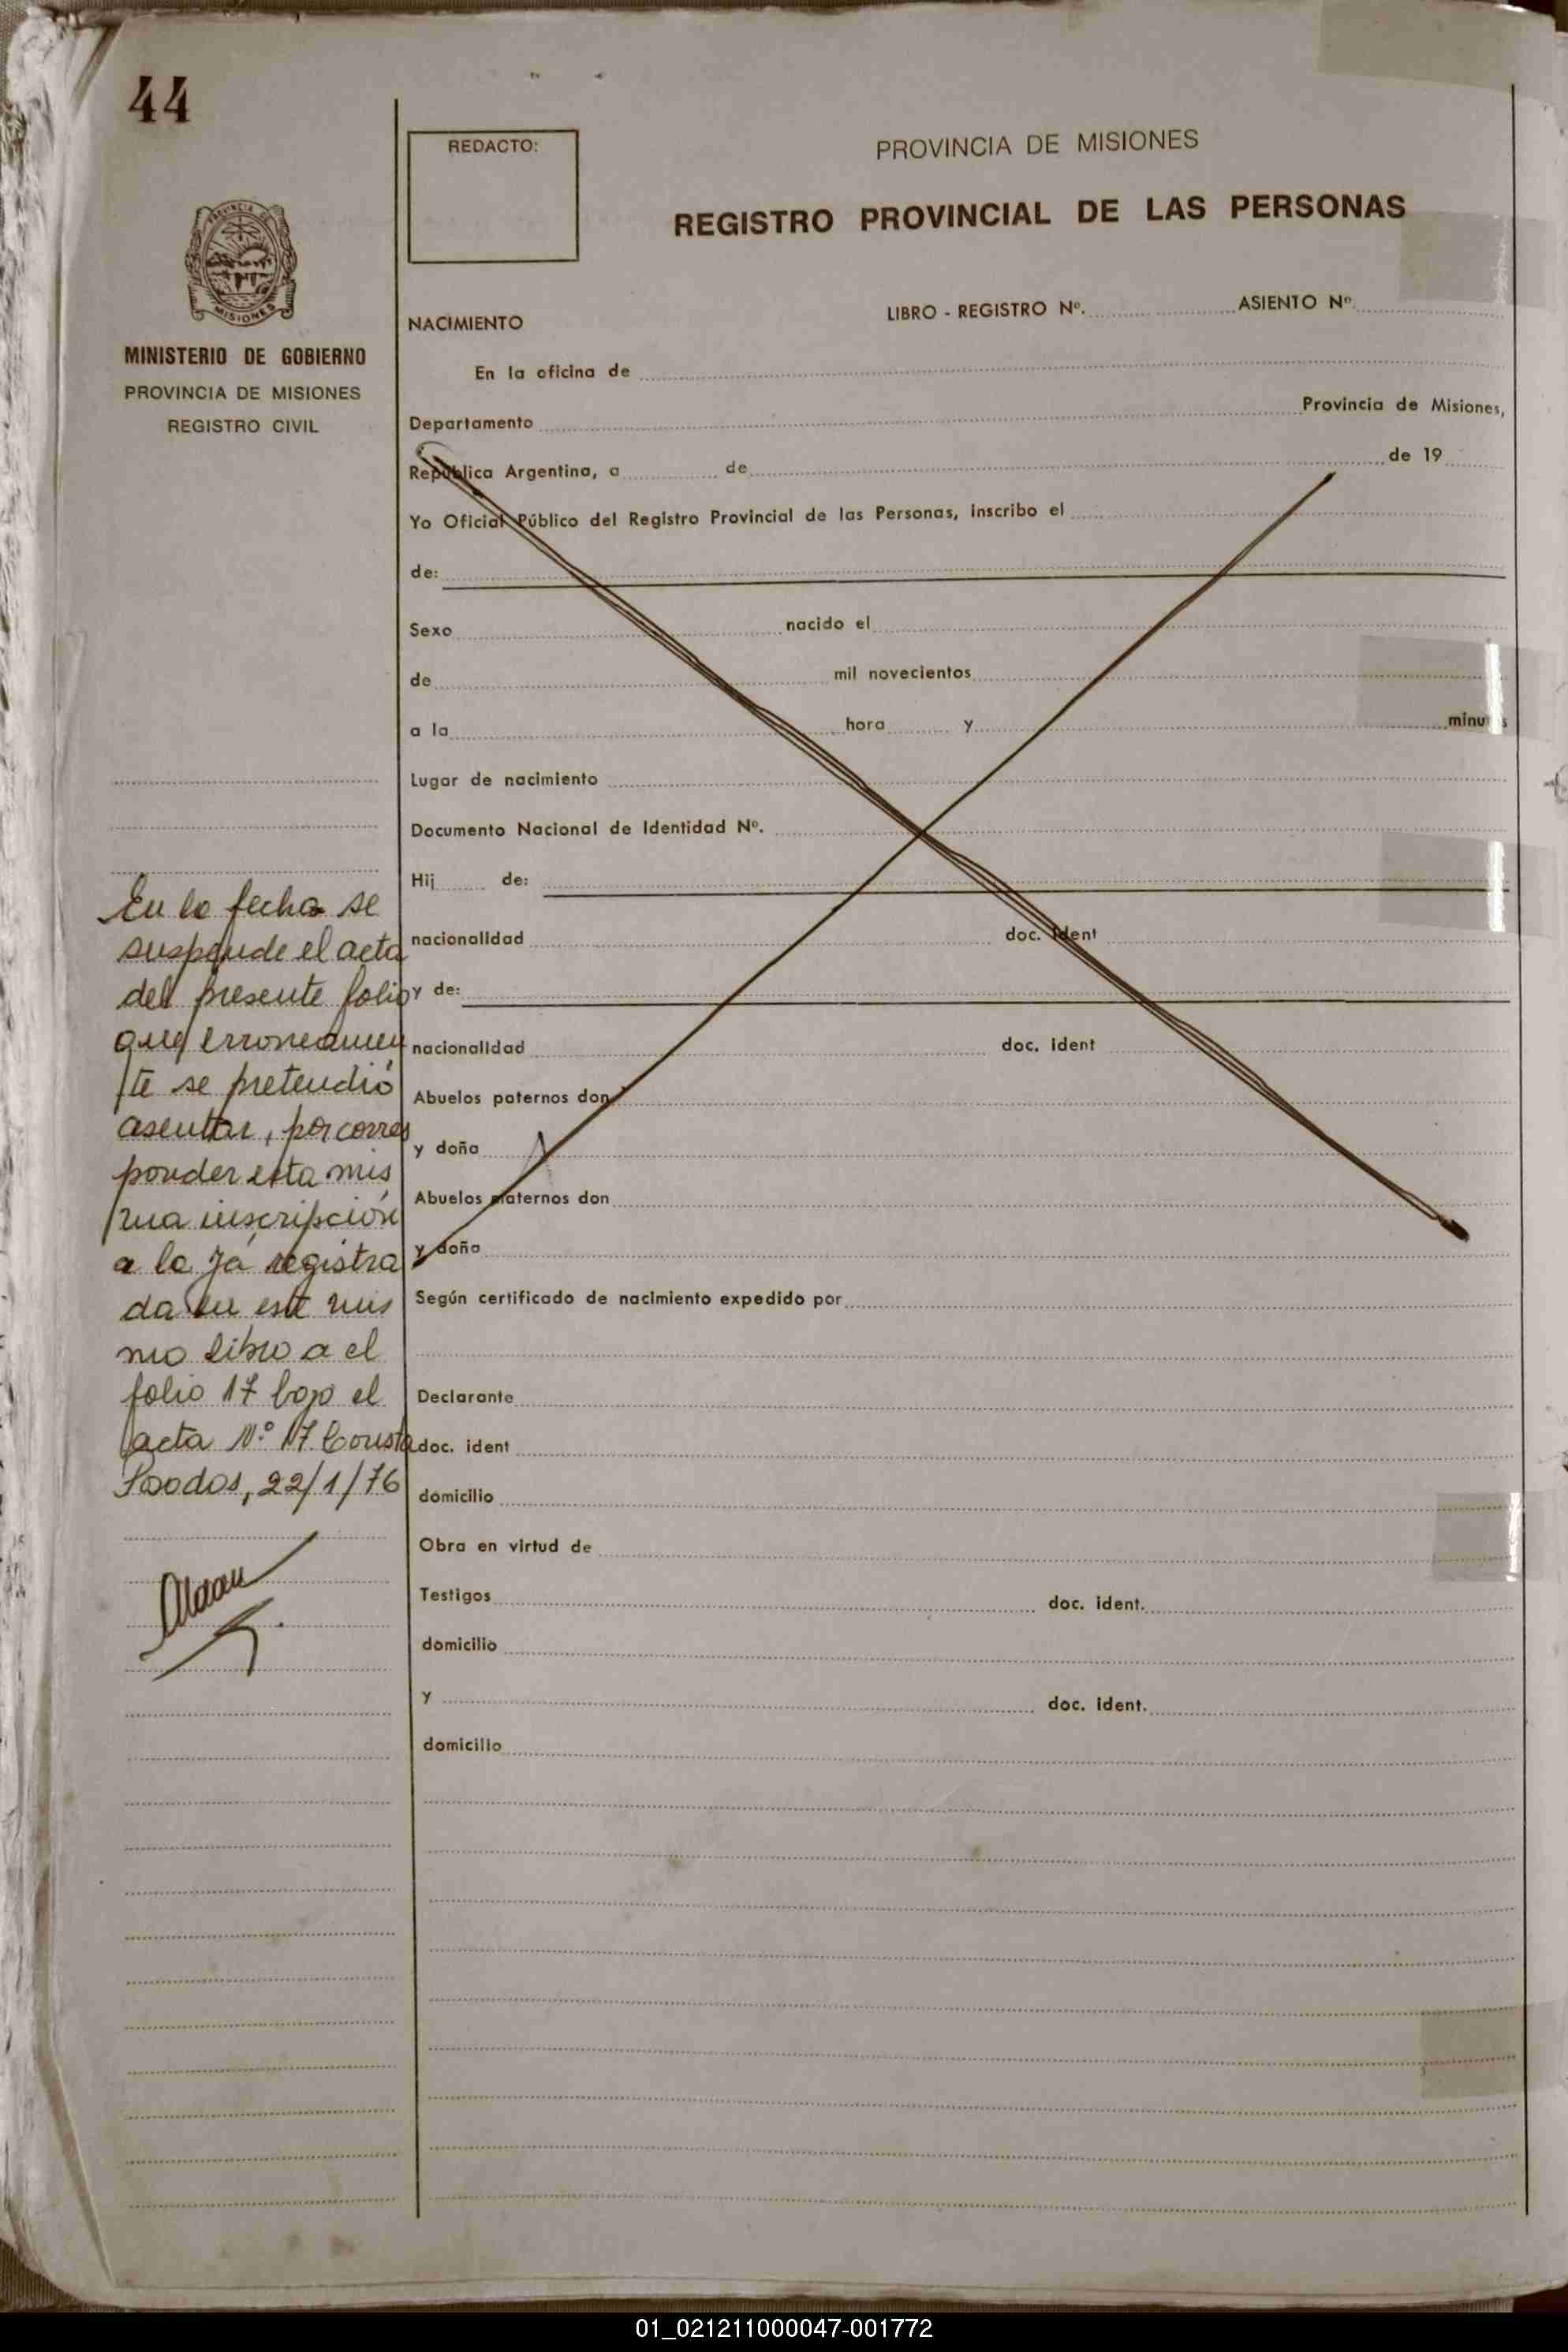 44
REDACTO:
PROVINCIA DE MISIONES
REGISTRO PROVINCIAL DE LAS PERSONAS
PROVINCIA DE
MISIONES
MINISTERIO DE GOBIERNO
PROVINCIA DE MISIONES
REGISTRO CIVIL
LIBRO - REGISTRO Nº. ASIENTO Nº
NACIMIENTO
En la oficina de
Departamento Provincia de Misiones,
República Argentina, a de de 19
Yo Oficial Público del Registro Provincial de las Personas, inscribo el
de:
Sexo nacido el
de mil novecientos
a la hora y minutos
Lugar de nacimiento
Documento Nacional de Identidad Nº.
Hij de:
nacionalidad doc. ident
y de:
nacionalidad doc. ident
Abuelos paternos don
y doña
Abuelos maternos don
y doña
Según certificado de nacimiento expedido por
Declarante
doc. ident
domicilio
Obra en virtud de
Testigos doc. ident.
domicilio
y doc. ident.
domicilio
En la fecha se
suspende el acta
del presente folio
que erroneamen
te se pretendió
asentar, por corres
ponder esta mis
ma inscripción
a la ya registra
da en este mis
mo libro a el
folio 17 bajo el
acta Nº 17 Consta
22/1/76
01_021211000047-001772